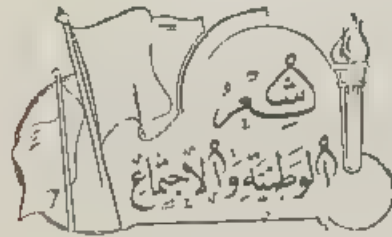 شِعرُ
الْوَطَنِيَّةِ وَالْاِجْتِمَاعِ